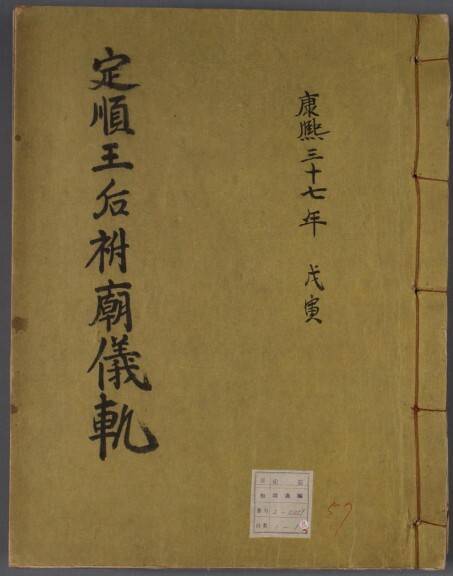 康熙三十七年 戊寅
定順王后祔廟儀軌
57